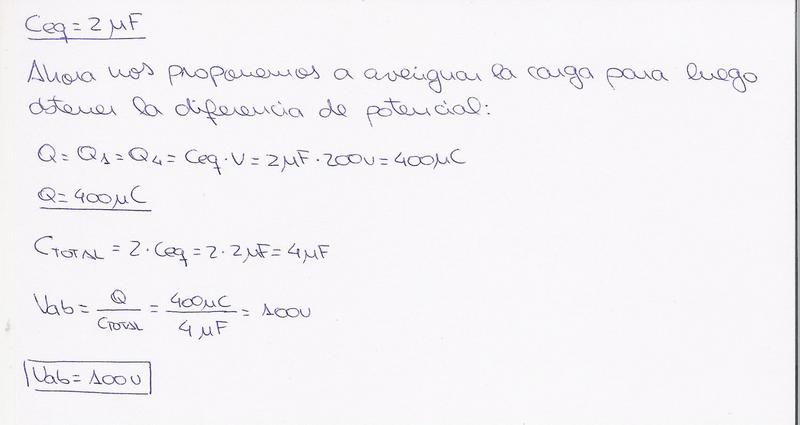 Ceq = 2 μF
Ahora nos proponemos a averiguar la carga para luego
obtener la diferencia de potencial:
Q = Q1 = Q4 = Ceq · V = 2 μF · 200V = 400 μC
Q = 400 μC
CTOTAL = 2 · Ceq = 2 · 2 μF = 4 μF
Vab = Q / CTOTAL = 400 μC / 4 μF = 100V
Vab = 100V